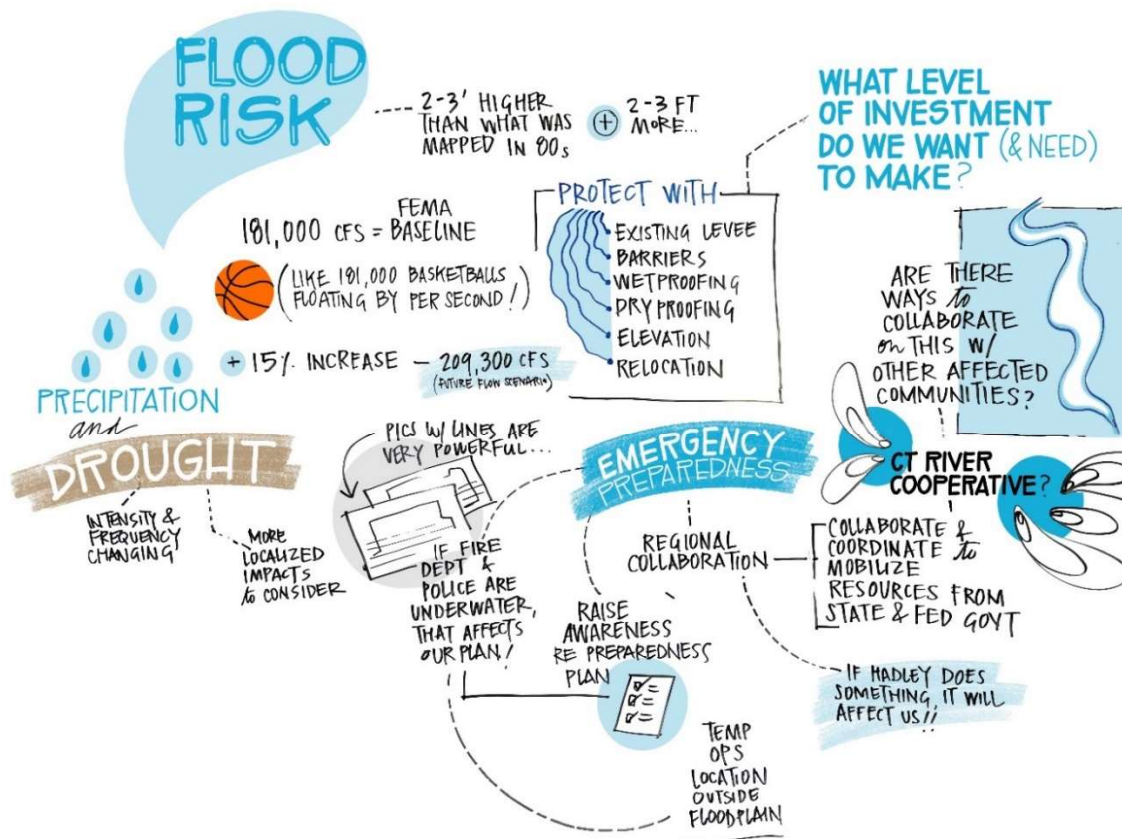 FLOOD
RISK
2-3' HIGHER
THAN WHAT WAS
MAPPED IN 80s
+
2-3 FT
MORE...
WHAT LEVEL
OF INVESTMENT
DO WE WANT (& NEED)
TO MAKE?
181,000 CFS = FEMA BASELINE
(LIKE 181,000 BASKETBALLS
FLOATING BY PER SECOND!)
+ 15% INCREASE – 209,300 CFS
(FUTURE FLOW SCENARIO)
PROTECT WITH
EXISTING LEVEE
BARRIERS
WETPROOFING
DRYPROOFING
ELEVATION
RELOCATION
ARE THERE
WAYS to
COLLABORATE
on THIS W/
OTHER AFFECTED
COMMUNITIES?
PRECIPITATION
and
DROUGHT
INTENSITY &
FREQUENCY
CHANGING
MORE
LOCALIZED
IMPACTS
to CONSIDER
PICS W/ LINES ARE
VERY POWERFUL...
IF FIRE
DEPT &
POLICE ARE
UNDERWATER,
THAT AFFECTS
OUR PLAN!
EMERGENCY
PREPAREDNESS
RAISE
AWARENESS
RE PREPAREDNESS
PLAN
REGIONAL
COLLABORATION
CT RIVER
COOPERATIVE?
COLLABORATE &
COORDINATE to
MOBILIZE
RESOURCES FROM
STATE & FED GOVT
IF HADLEY DOES
SOMETHING, IT WILL
AFFECT US!!
TEMP
OPS
LOCATION
OUTSIDE
FLOODPLAIN